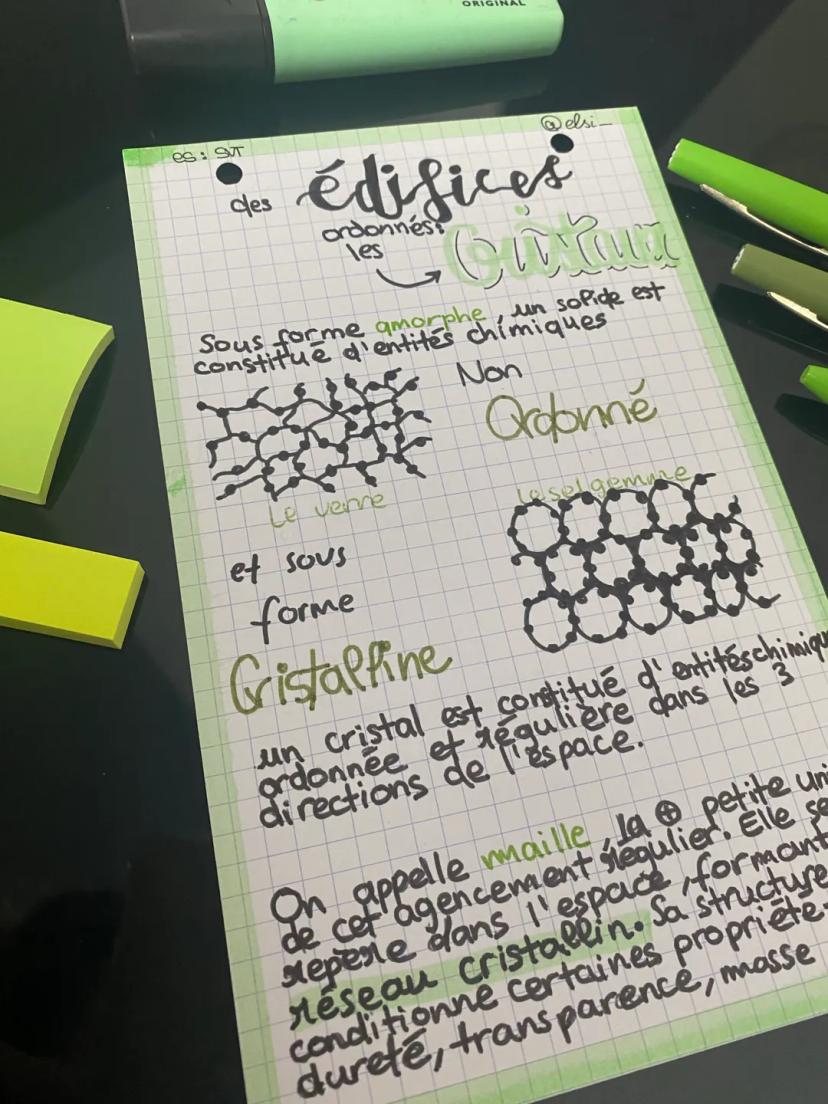 ORIGINAL
@elsi_
es: ST
des édifices
ordonnés:
les
Cristaux
Sous forme amorphe, un solide est
constitué d'entités chimiques
Non
Ordonné
Le verre
Le sel gemme
et sous
forme
Cristalline
un cristal est constitué d'entités chimiqu
ordonnée et régulière dans les 3
directions de l'espace.
On appelle maille, la ⊕ petite uni
de cet agencement régulier. Elle se
repère dans l'espace, formant
réseau cristallin. Sa structure
conditionne certaines propriété
dureté, transparence, masse